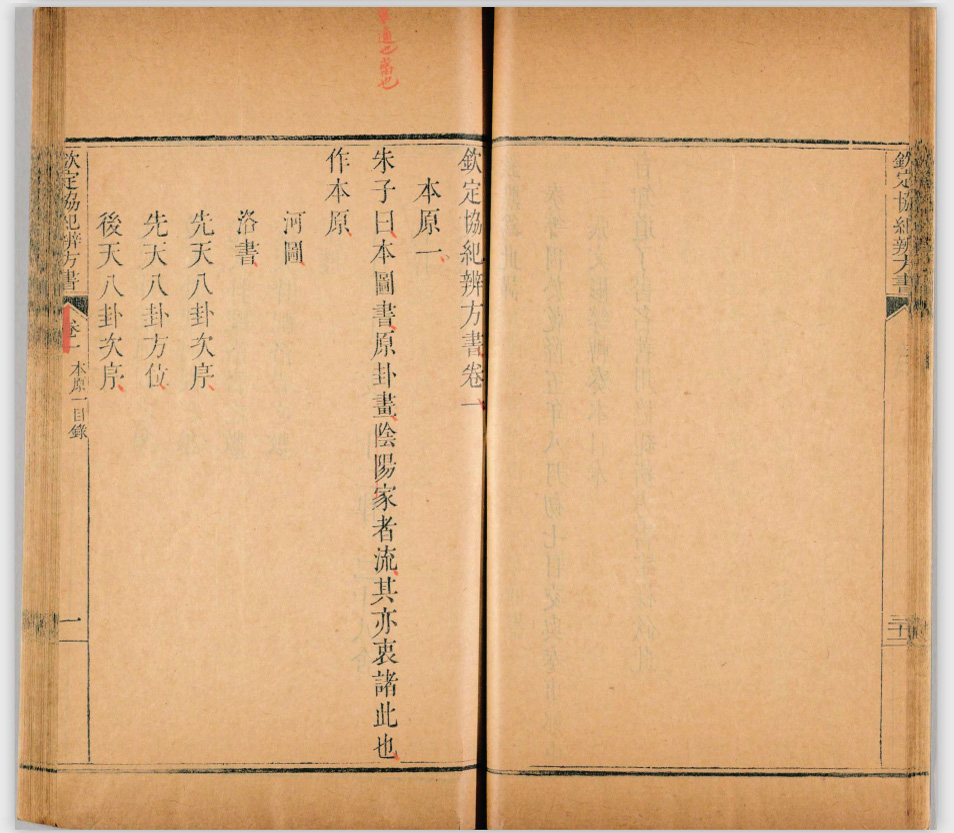 欽定協紀辨方書
欽定協紀辨方書卷一
本原一
朱子曰本圖書原卦畫陰陽家者流其亦衷諸此也
作本原
河圖
洛書
先天八卦次序
先天八卦方位
後天八卦次序
欽定協紀辨方書
卷一
本原一目錄
一